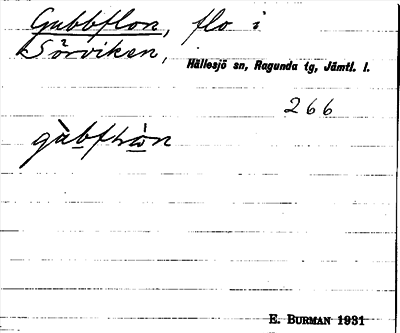 Gubbflon, flo i
Sörviken,
Hällesjö sn, Ragunda tg, Jämtl. l.
266
E. BURMAN 1931